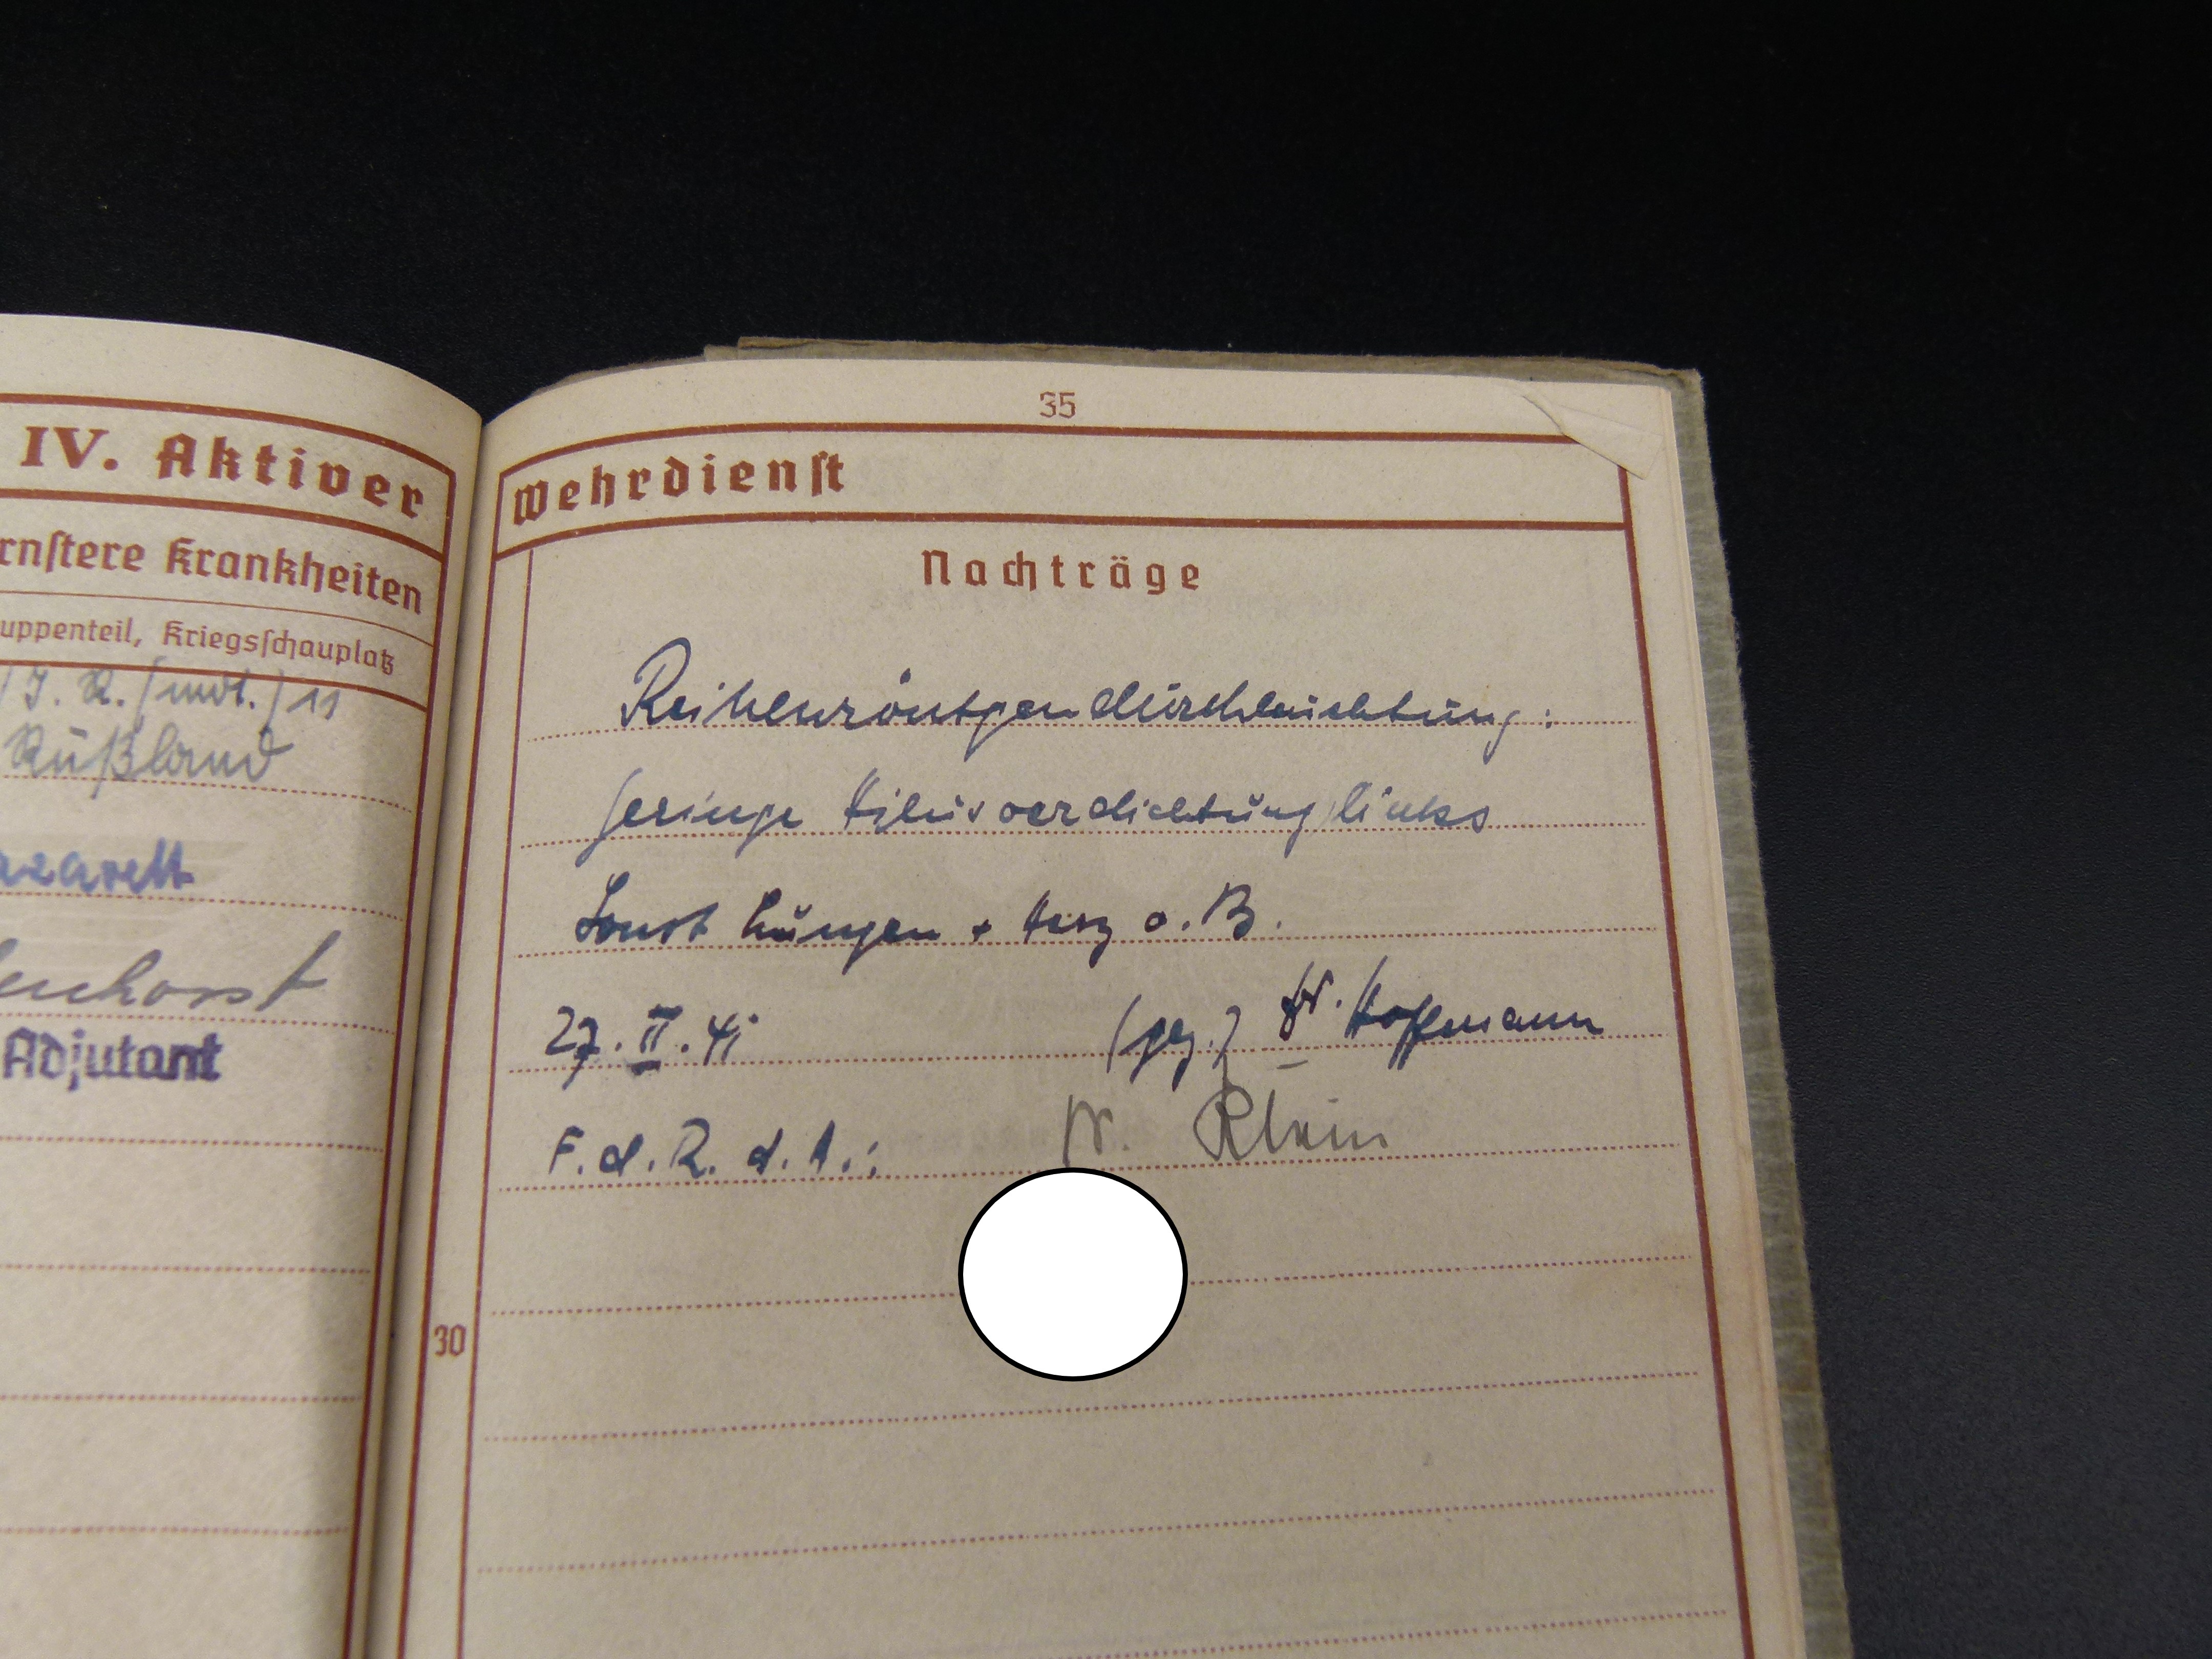 IV. Aktiver
rnstere Krankheiten
uppenteil, Kriegsschauplatz
/J.R.(mot.) 11
Rußland
azarett
enhorst
Adjutant
35
Wehrdienst
Nachträge
Reihenröntgendurchleuchtung:
geringe Hilusverdichtung links
Sonst Lungen + Herz o.B.
27.II.41 (gez.) Dr. Hoffmann
F.d.R.d.A.:
30